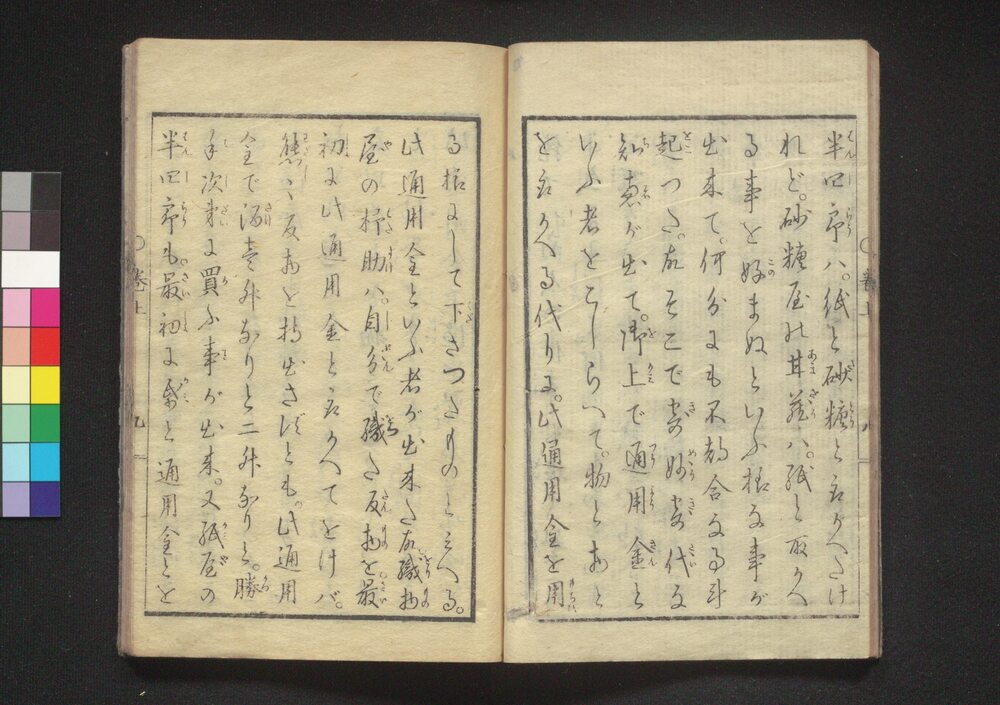 半四郎ハ。紙と砂糖と取かへたけ
れど。砂糖屋の甘蔵ハ。紙と取かへ
る事を好まぬといふ様な事が
出来て。何分にも不都合な事計
起つた。故そこで奇妙奇代な
知恵が出て。御上で通用金と
いふ者をこしらへて。物とあと
を取かへる代りに。此通用金を用
る様にして下さつたものとみへる。
此通用金といふ者が出来た故。織物
屋の杼助ハ。自分で織た反物を最
初に此通用金と取かへてをけバ。
態々反物を持出さずとも。此通用
金で酒壱升なりと二升なりと。勝
手次第に買ふ事が出来。又紙屋の
半四郎も。最初に紙と通用金とを
〇巻上
八
〇巻上
九